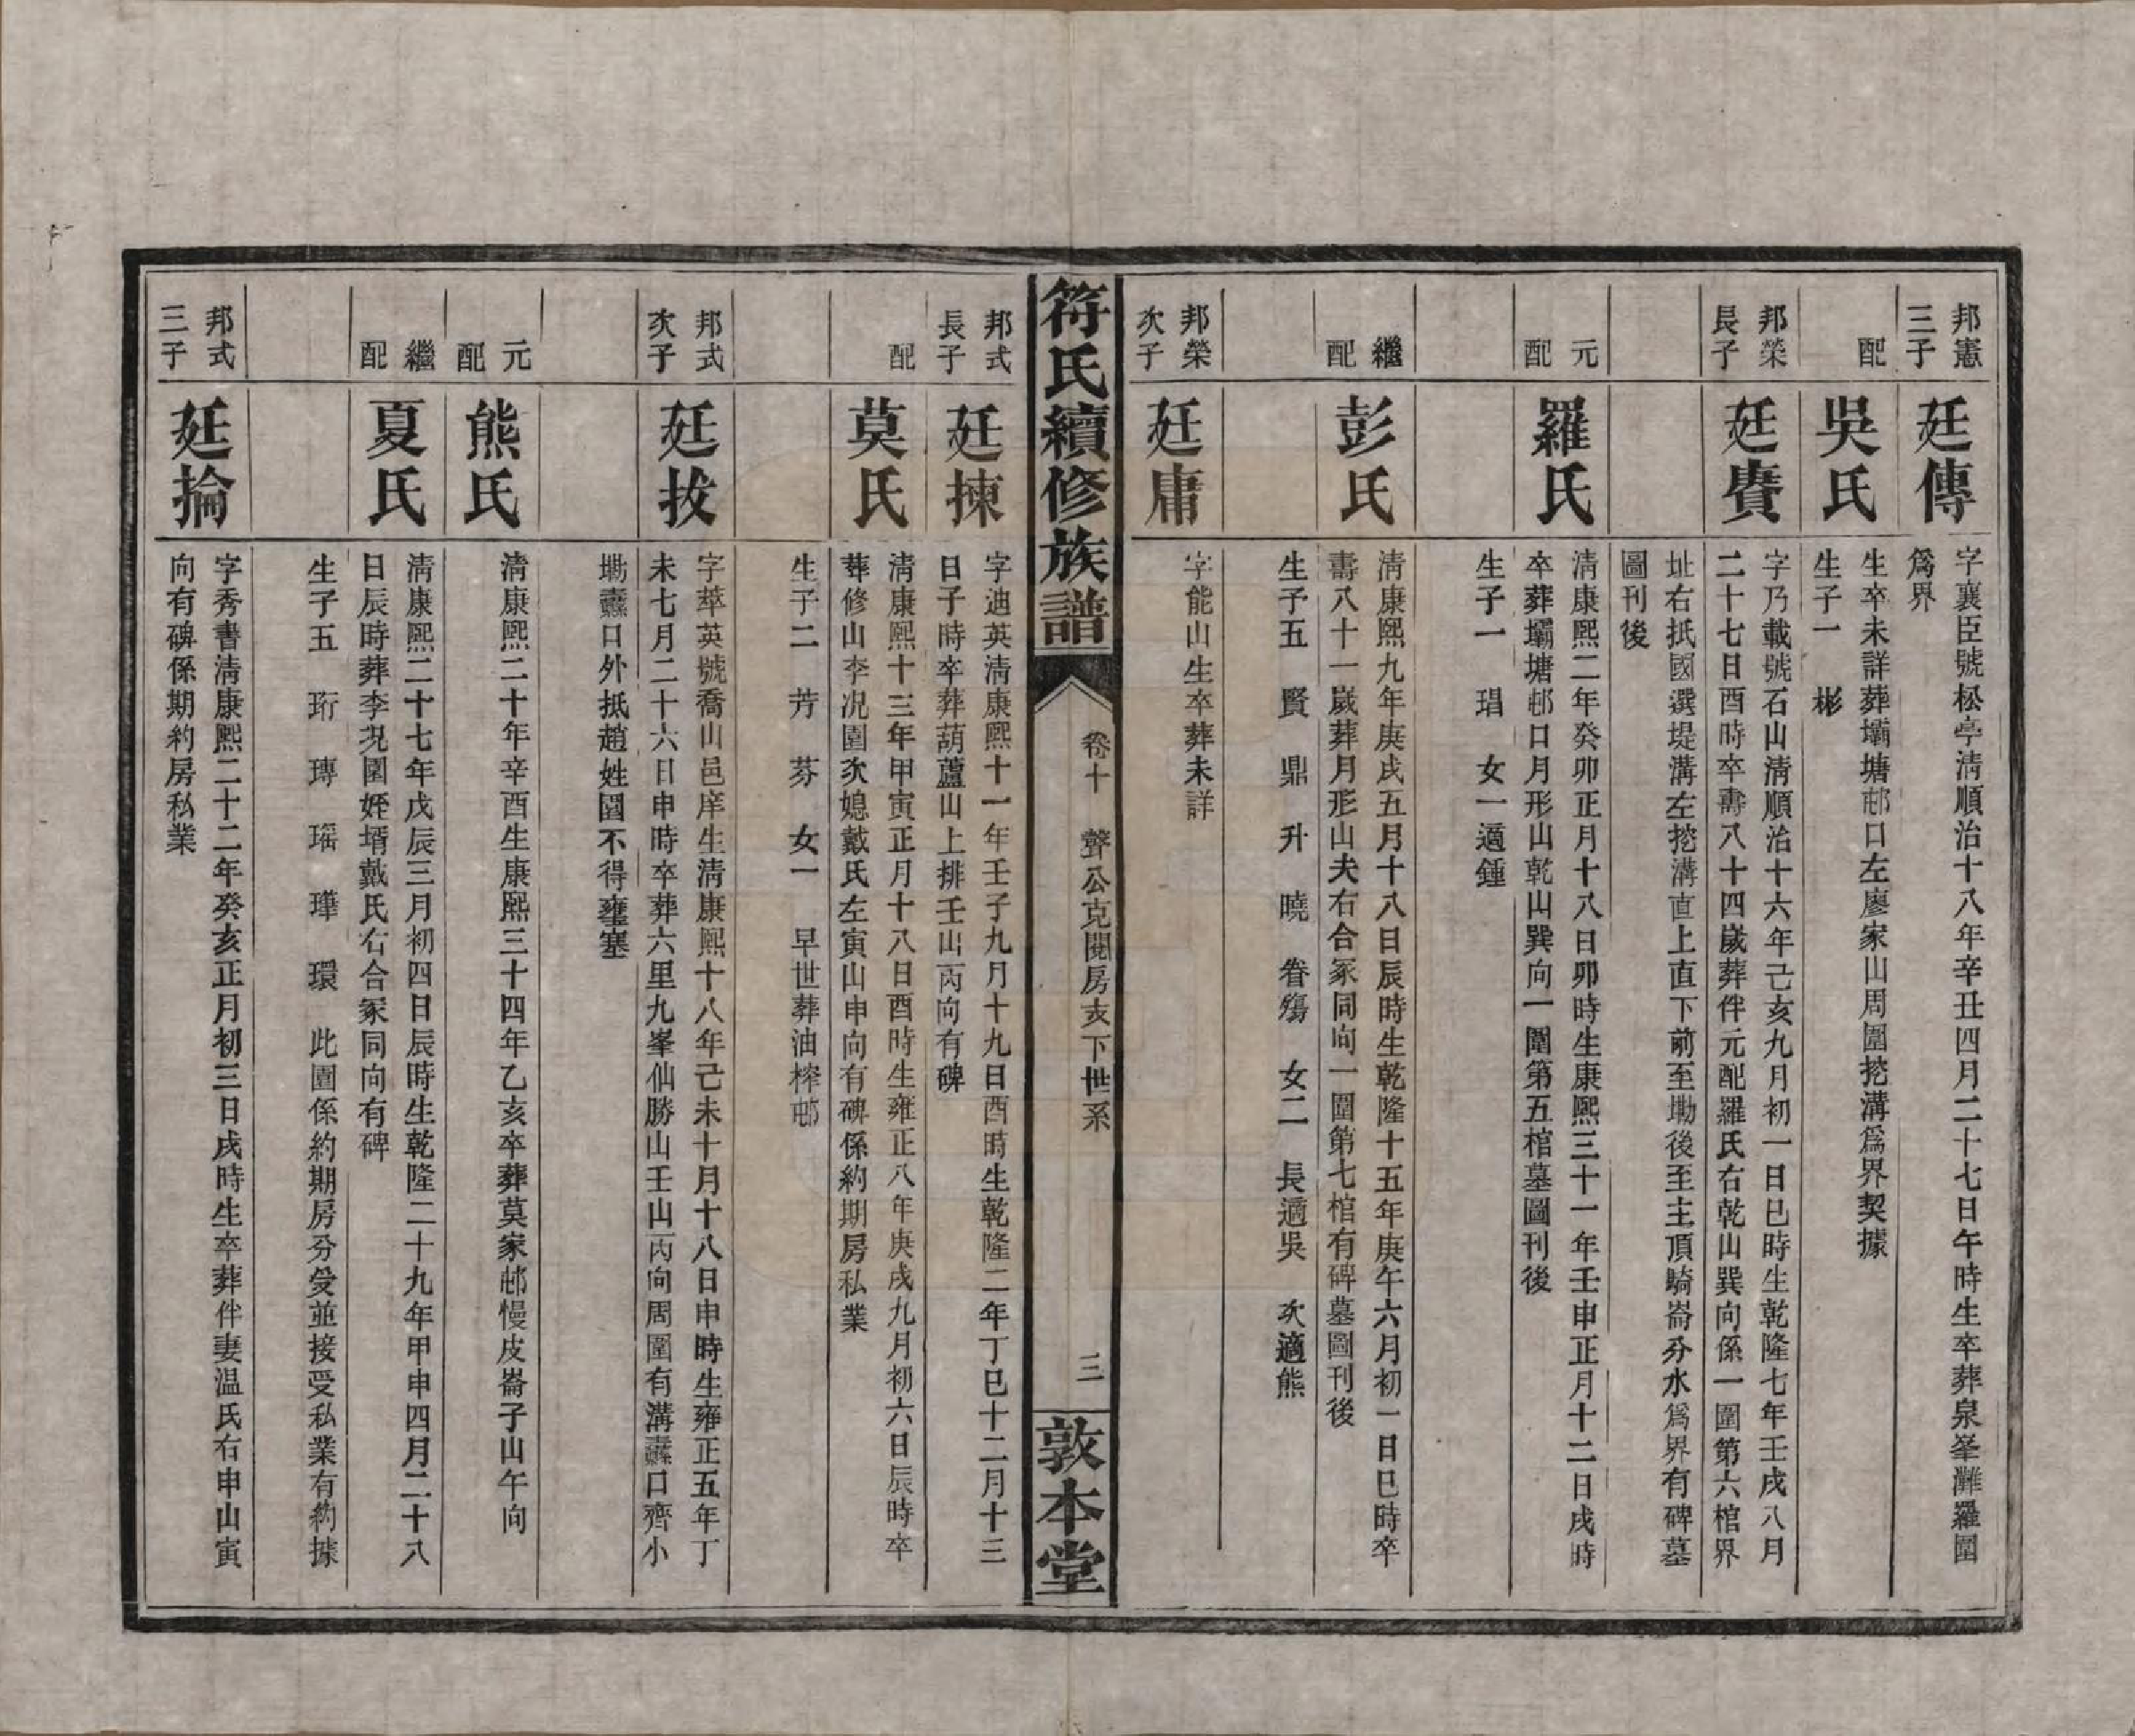 邦憲
三子
廷傳
字襄臣號松亭淸順治十八年辛丑四月二十七日午時生卒葬泉峯灘羅圍
爲界
配
吳氏
生卒未詳葬壩塘邨口左廖家山周圍挖溝爲界契據
生子一　彬
邦榮
長子
廷賡
字乃載號石山淸順治十六年己亥九月初一日巳時生乾隆七年壬戌八月
二十七日酉時卒壽八十四歲葬伴元配羅氏右乾山巽向係一圍第六棺界
址右抵國選堤溝左挖溝直上直下前至墈後至主頂騎崙分水爲界有碑墓
圖刊後
元
配
羅氏
淸康熙二年癸卯正月十八日卯時生康熙三十一年壬申正月十二日戌時
卒葬壩塘邨口月形山乾山巽向一圍第五棺墓圖刊後
生子一　琩　女一適鍾
繼
配
彭氏
淸康熙九年庚戌五月十八日辰時生乾隆十五年庚午六月初一日巳時卒
壽八十一歲葬月形山夫右合冢同向一圍第七棺有碑墓圖刊後
生子五　賢　鼎　升　曉　眷殤　女二　長適吳　次適熊
邦榮
次子
廷庸
字能山生卒葬未詳
符氏續修族譜
卷十　聲公克閱房亥下世系
三
敦本堂
邦式
長子
廷揀
字迪英淸康熙十一年壬子九月十九日酉時生乾隆二年丁巳十二月十三
日子時卒葬葫蘆山上排壬山丙向有碑
配
莫氏
淸康熙十三年甲寅正月十八日酉時生雍正八年庚戌九月初六日辰時卒
葬修山李況園次媳戴氏左寅山申向有碑係約期房私業
生子二　芳　芬　女一　早世葬油榨邨
邦式
次子
廷拔
字萃英號喬山邑庠生淸康熙十八年己未十月十八日申時生雍正五年丁
未七月二十六日申時卒葬六里九峯仙勝山壬山丙向周圍有溝蠹口齊小
墈蠹口外抵趙姓園不得壅塞
元
配
熊氏
淸康熙二十年辛酉生康熙三十四年乙亥卒葬莫家邨慢皮崙子山午向
繼
配
夏氏
淸康熙二十七年戊辰三月初四日辰時生乾隆二十九年甲申四月二十八
日辰時葬李況園姪壻戴氏右合冢同向有碑
生子五　珩　瑼　瑤　瑋　環　此園係約期房分受並接受私業有約據
邦式
三子
廷掄
字秀書淸康熙二十二年癸亥正月初三日戌時生卒葬伴妻温氏右申山寅
向有碑係期約房私業